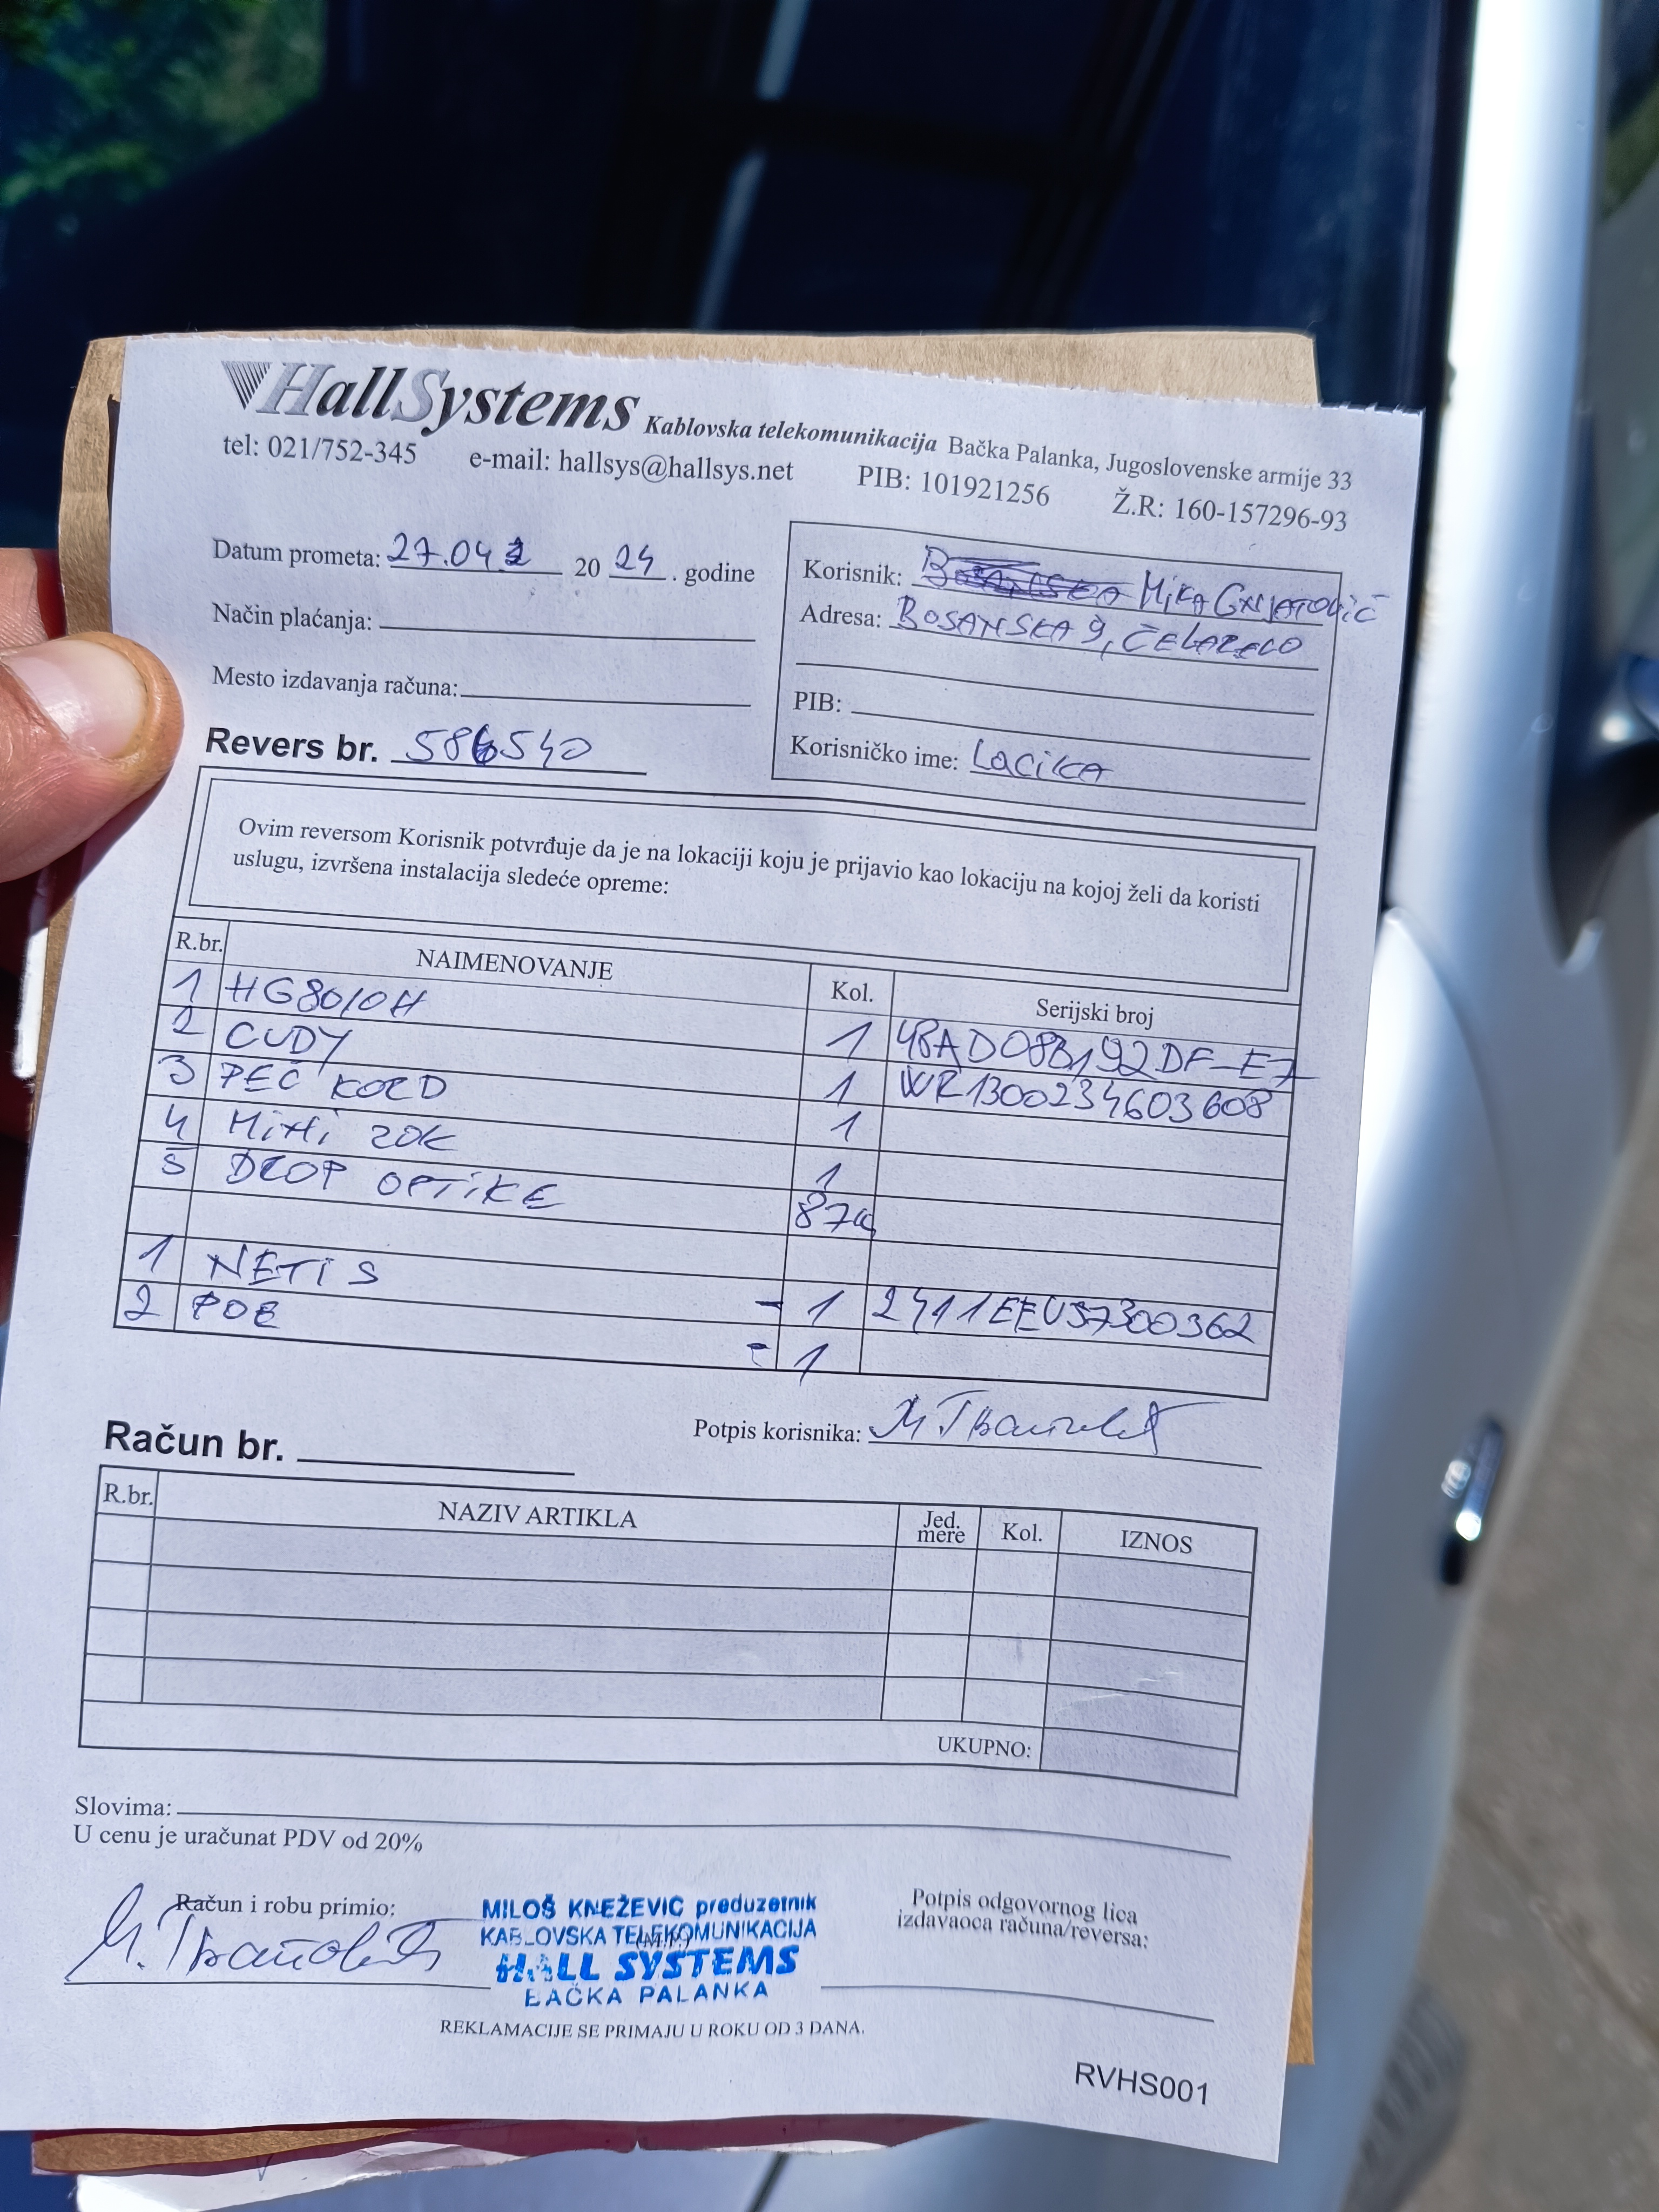 HallSystems Kablovska telekomunikacija Bačka Palanka, Jugoslovenske armije 33
tel: 021/752-345 e-mail: hallsys@hallsys.net PIB: 101921256 Ž.R: 160-157296-93
Datum prometa: 27.04 2024. godine
Način plaćanja:
Mesto izdavanja računa:
Revers br. 586540
Korisnik: Mika Gnjatović
Adresa: BOSANSKA 9, ČELAREVO
PIB:
Korisničko ime: Lacika
Ovim reversom Korisnik potvrđuje da je na lokaciji koju je prijavio kao lokaciju na kojoj želi da koristi
uslugu, izvršena instalacija sledeće opreme:
R.br. NAIMENOVANJE Kol. Serijski broj
1 HG8010H 1 48AD08B192DF-E7
2 CUDY 1 WR1300234603608
3 PEČ KORD 1
4 MiNi ZOK 1
5 DROP OPTIKE 87m
1 NETIS - 1 2411EEU37300362
2 POE - 1
Potpis korisnika:
Račun br.
R.br. NAZIV ARTIKLA Jed. mere Kol. IZNOS
UKUPNO:
Slovima:
U cenu je uračunat PDV od 20%
Račun i robu primio:
MILOŠ KNEŽEVIĆ preduzetnik
KABLOVSKA TELEKOMUNIKACIJA
(M.P.)
HALL SYSTEMS
BAČKA PALANKA
Potpis odgovornog lica
izdavaoca računa/reversa:
REKLAMACIJE SE PRIMAJU U ROKU OD 3 DANA.
RVHS001